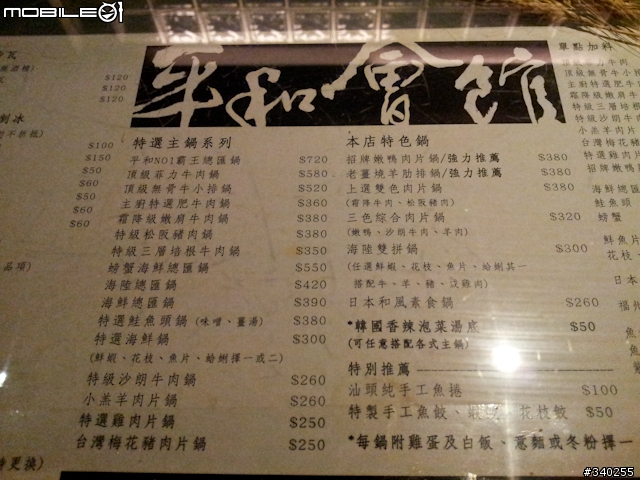 MOBILE01
平和會館
$120
$120
$120
$100
$150
$50
$60
$50
$60
$60
品項)
特選主鍋系列
平和NO1霸王總匯鍋 $720
頂級菲力牛肉鍋 $580
頂級無骨牛小排鍋 $520
主廚特選肥牛肉鍋 $360
霜降級嫩肩牛肉鍋 $380
特級松阪豬肉鍋 $380
特級三層培根牛肉鍋 $350
螃蟹海鮮總匯鍋 $550
海陸總匯鍋 $420
海鮮總匯鍋 $390
特選鮭魚頭鍋(味噌、薑湯) $380
特選海鮮鍋 $300
(鮮蝦、花枝、魚片、蛤蜊擇一或二)
特級沙朗牛肉鍋 $260
小羔羊肉片鍋 $260
特選雞肉片鍋 $250
台灣梅花豬肉片鍋 $250
本店特色鍋
招牌嫩鴨肉片鍋/強力推薦 $380
老薑燒羊肋排鍋/強力推薦 $380
上選雙色肉片鍋 $380
(霜降牛肉、松阪豬肉)
三色綜合肉片鍋 $320
(嫩鴨、沙朗牛肉、羊肉)
海陸雙拼鍋 $300
(任選鮮蝦、花枝、魚片、蛤蜊其一
搭配牛、羊、豬、沈雞肉)
日本和風素食鍋 $260
*韓國香辣泡菜湯底 $50
(可任意搭配各式主鍋)
特別推薦
汕頭純手工魚捲 $100
特製手工魚餃、蝦餃、花枝餃 $50
*每鍋附雞蛋及白飯、蔥麵或冬粉擇一
單點加料
頂級無骨牛
主廚特選肥
霜降級嫩肩
特級三層培
小羔羊肉片
台灣梅花豬
特選雞肉片
招牌嫩鴨肉
海鮮總
鮭魚頭
螃蟹
鮮魚片
花枝
#340255